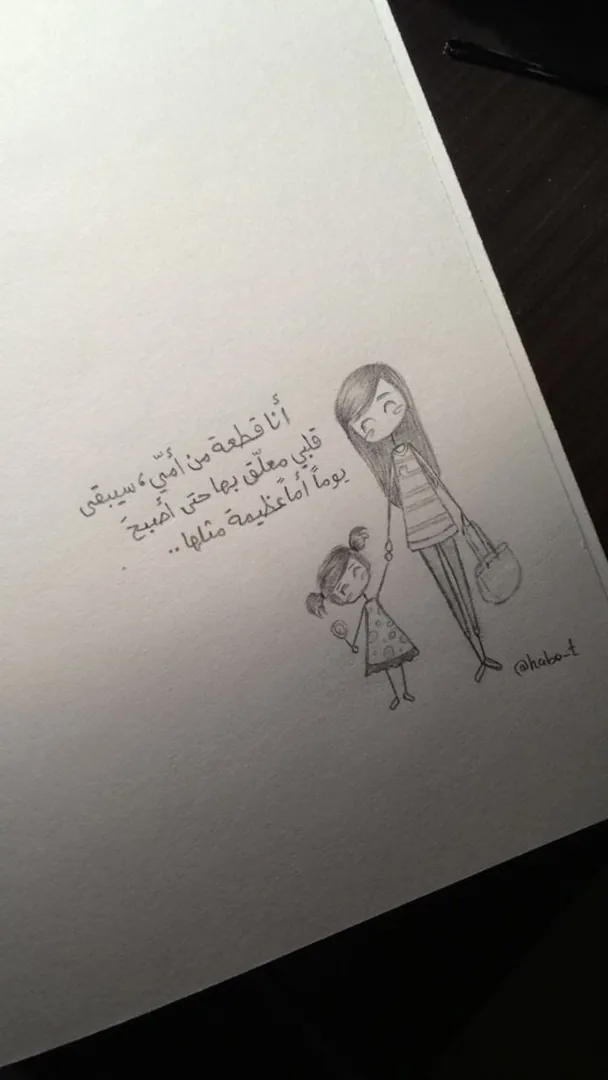 أنا قطعة من أمّي، سيبقى
قلبي معلّق بها حتى أصبحَ
يوماً أماً عظيمة مثلها..
@habo_t